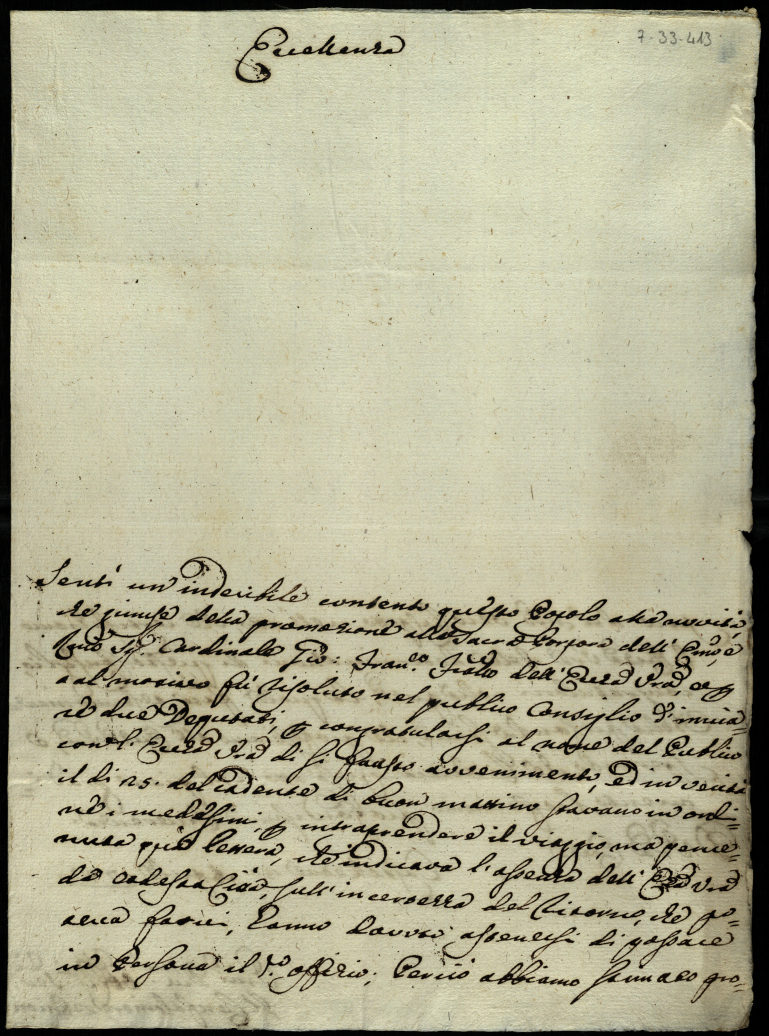 7-33-413
Eccellenza
Sentì un'indecibile contento questo Popolo alla novità,
che giunse della promozione alla Sacra Porpora dell' Emo, e
Rmo Sigr. Cardinale Gio: Fran.co dell' Ecca Vra, e p
tal motivo fù risoluto nel publico Consiglio d'invia=
re due Deputati, p congratularsi al nome del Publico
coll' Ecca Vra di sì fausto avvenimento, ed in verità
il dì 25. del cadente di buon mattino stavano in ordi=
ne i medesimi, p intraprendere il viaggio, ma perve=
nuta quà lettera, che indicava l'assenza dell' Ecca Vra
da codesta Città, sull'incertezza del ritorno, che po=
teva farvi, hanno dovuto astenersi di passare
in Persona il d.o offizio; Perciò abbiamo stimato pro=